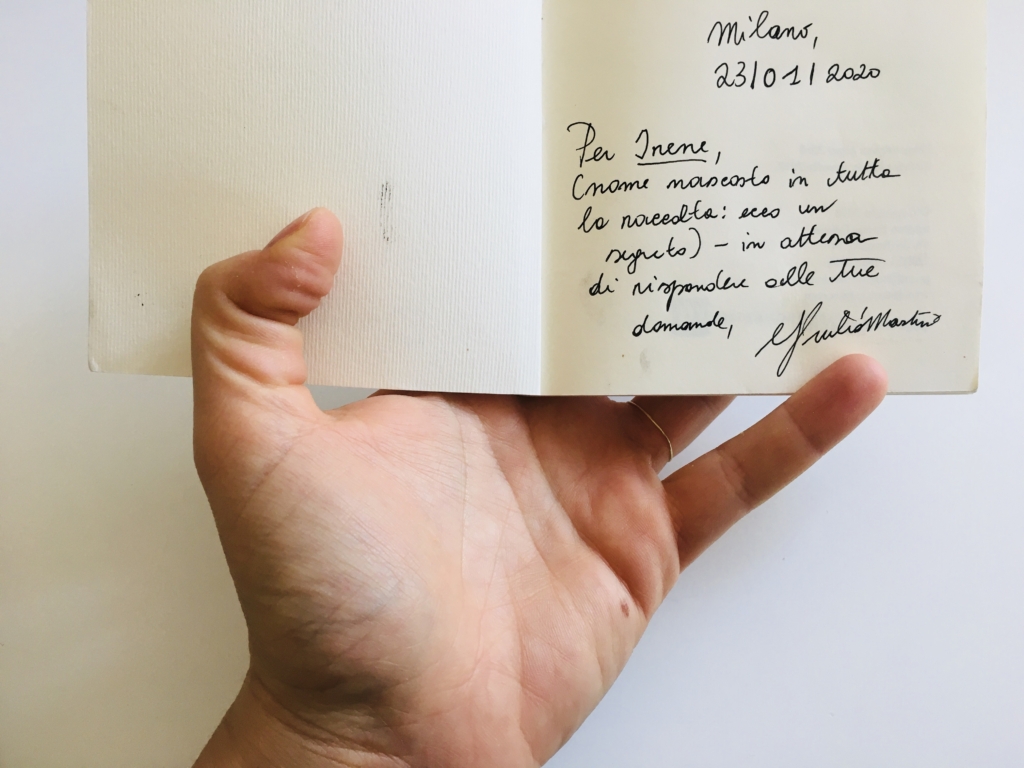 Milano,
23/01/2020
Per Irene,
(nome nascosto in tutta
la raccolta: ecco un
segreto) - in attesa
di rispondere alle Tue
domande,